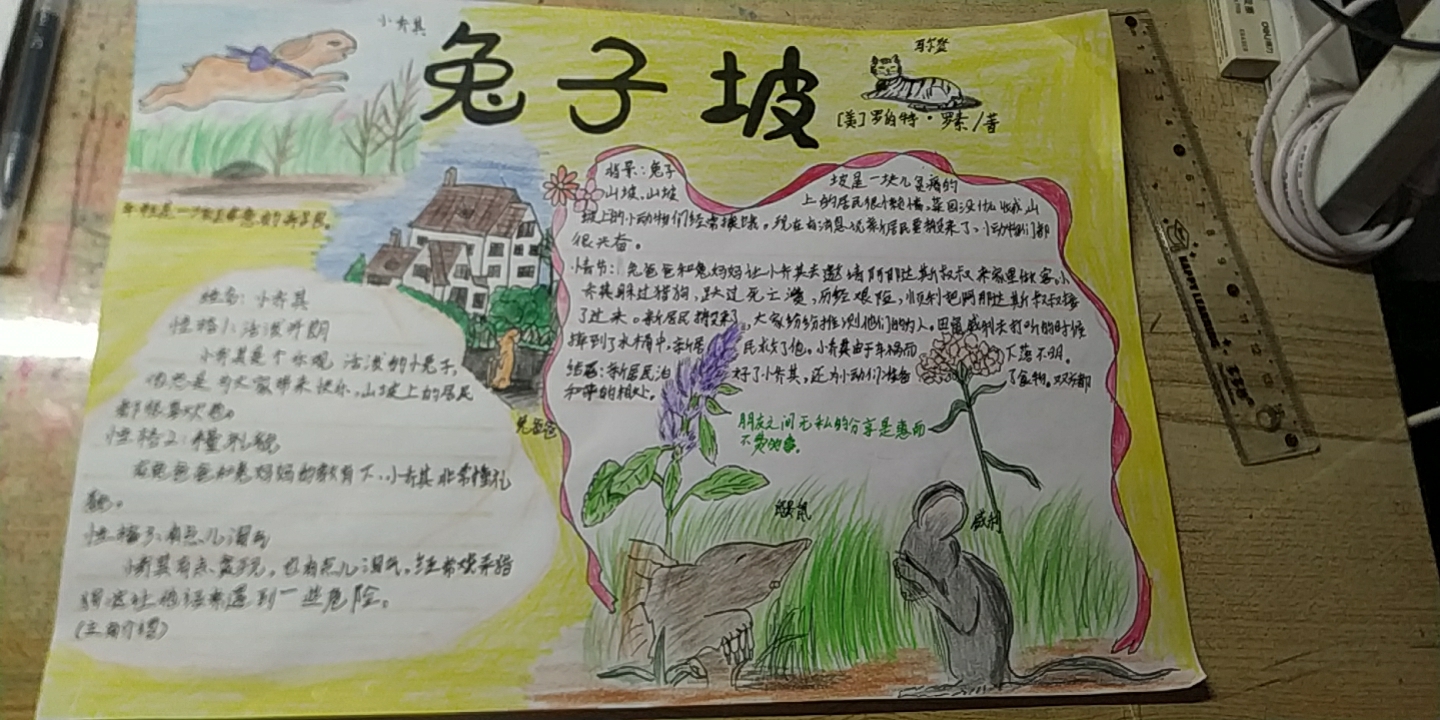 小乔其
兔子坡
[美]罗伯特·罗素/著
姓名：小乔其
性格1：活泼开朗
小乔其是个乐观、活泼的小兔子，
他总是为大家带来快乐，山坡上的居民
都很喜欢他。
性格2：懂礼貌
在兔爸爸和兔妈妈的教育下，小乔其非常懂礼
貌。
性格3：有点儿淘气
小乔其有点贪玩，也有点儿淘气，经常戏弄猎
狗这让他往往遇到一些危险。
(主角介绍)
兔爸爸
背景：兔子 坡是一块儿贫瘠的
山坡，山坡 上的居民很懒惰，菜园没忧 山
坡上的小动物们经常挨饿。现在有消息说新居民要搬来了，小动物们都
很兴奋。
情节：兔爸爸和兔妈妈让小乔其去邀请阿那达斯叔叔来家里做客。小
乔其躲过猎狗，跃过死亡溪，历经艰险，顺利把阿那达斯叔叔接
了过来。新居民搬来了，大家纷纷推测他们的为人。田鼠威利去打听的时候
掉到了水桶中，新居 民救了他。小乔其由于车祸而 下落不明。
结尾：新居民治 好了小乔其，还为小动物们准备 了食物。双方都
和苹的相处。
朋友之间无私的分享是惠而
不费的喜。
鼹鼠
威利
HAPPY LEARNING